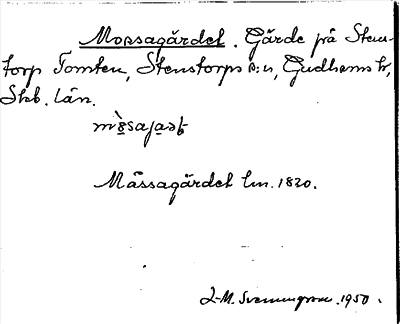 Mossagärdet. Gärde på Stens-
torp Tomten, Stenstorps s:n, Gudhems hd,
Skb. län.
Måssagärdet lm. 1820.
J-M. 1950.